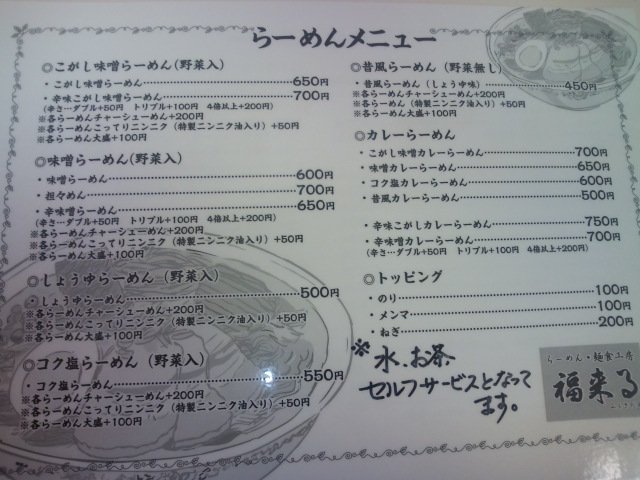 らーめんメニュー
◎こがし味噌らーめん(野菜入)
・こがし味噌らーめん………650円
・辛味こがし味噌らーめん………700円
(辛さ…ダブル+50円 トリプル+100円 4倍以上+200円)
※各らーめんチャーシューめん+200円
※各らーめんこってりニンニク(特製ニンニク油入り)+50円
※各らーめん大盛+100円
◎味噌らーめん(野菜入)
・味噌らーめん………600円
・担々めん………700円
・辛味噌らーめん………650円
(辛さ…ダブル+50円 トリプル+100円 4倍以上+200円)
※各らーめんチャーシューめん+200円
※各らーめんこってりニンニク(特製ニンニク油入り)+50円
※各らーめん大盛+100円
◎しょうゆらーめん(野菜入)
・しょうゆらーめん………500円
※各らーめんチャーシューめん+200円
※各らーめんこってりニンニク(特製ニンニク油入り)+50円
※各らーめん大盛+100円
◎コク塩らーめん(野菜入)
・コク塩らーめん………550円
※各らーめんチャーシューめん+200円
※各らーめんこってりニンニク(特製ニンニク油入り)+50円
※各らーめん大盛+100円
◎昔風らーめん(野菜無し)
・昔風らーめん(しょうゆ味)………450円
※各らーめんチャーシューめん+200円
※各らーめんこってりニンニク(特製ニンニク油入り)+50円
※各らーめん大盛+100円
◎カレーらーめん
・こがし味噌カレーらーめん………700円
・味噌カレーらーめん………650円
・コク塩カレーらーめん………600円
・昔風カレーらーめん………500円
・辛味こがしカレーらーめん………750円
・辛味噌カレーらーめん………700円
(辛さ…ダブル+50円 トリプル+100円 4倍以上+200円)
◎トッピング
・のり………100円
・メンマ………100円
・ねぎ………200円
※水、お茶
セルフサービスとなって
ます。
らーめん・麺食工房
福来る